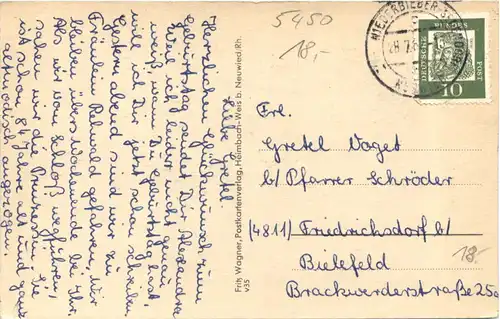 Liebe Gretel.
Herzlichen Glückwunsch zum
Geburtstag sendet Dir Alexandra
Weil ich leider nicht genau
weiß, wann Du Geburtstag hast,
will ich Dir jetzt schon schreiben
Gestern abend sind wir zu
Fräulein Rehwald gefahren, wir
bleiben übers Wochenende bei Ihr.
Als wir vom Schloß wegfuhren,
sahen wir die Prinzessin. Sie
ist schon 84 Jahre alt und ganz
altmodisch angezogen.
Fritz Wagner, Postkartenverlag, Heimbach-Weis b. Neuwied/Rh.
v35
5450
18,-
NIEDERBIEBER-S
DEUTSCHE
POST
10
Frl.
Gretel Voget
b/ Pfarrer Schröder
(4811) Friedrichsdorf b/
Bielefeld
18.-
Brackwerderstraße 25a